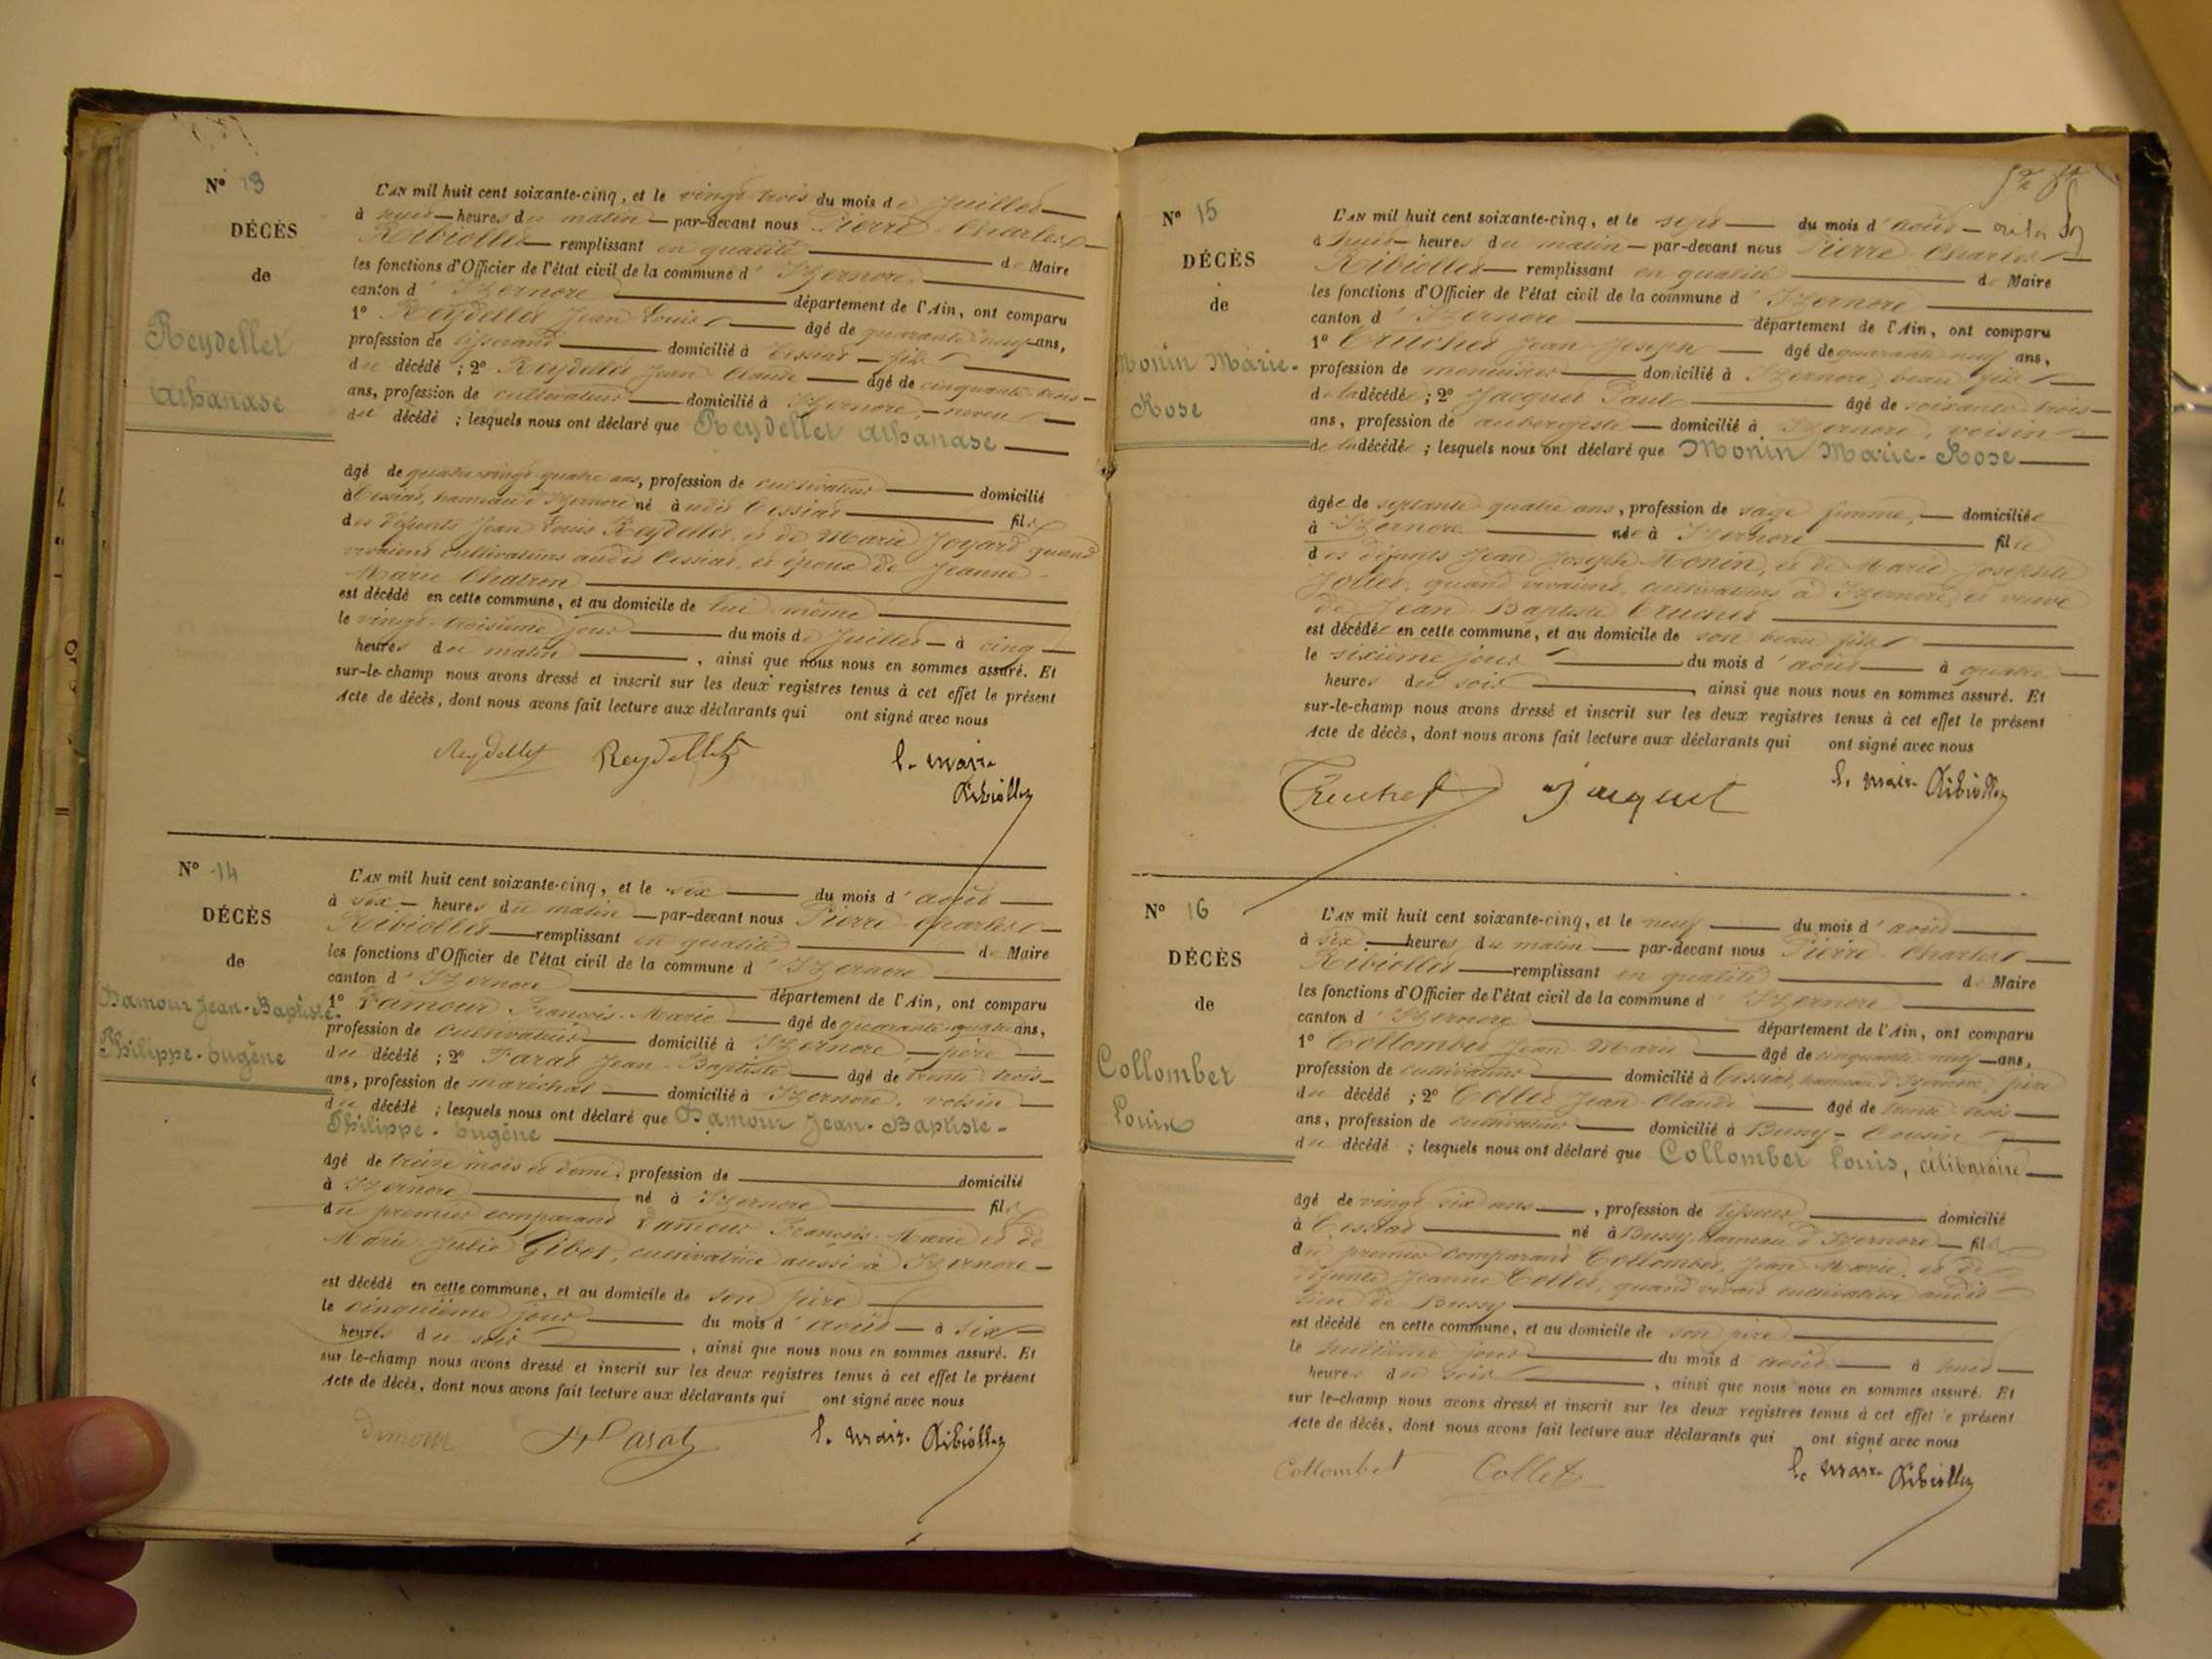 N° 13
DÉCÈS
de
Reydellet
Athanase
L'AN mil huit cent soixante-cinq, et le vingt trois du mois de Juillet
à huit heures du matin par-devant nous Pierre Charles
Ribiollet remplissant en qualité de Maire
les fonctions d'Officier de l'état civil de la commune d' Izernore
canton d' Izernore département de l'Ain, ont comparu
1° Reydellet Jean Louis âgé de quarante neuf ans,
profession de tisserand domicilié à Cessiat fils
du décédé ; 2° Reydellet Jean Claude âgé de cinquante trois
ans, profession de cultivateur domicilié à Izernore, neveu
du décédé ; lesquels nous ont déclaré que Reydellet Athanase
âgé de quatre vingt quatre ans, profession de cultivateur domicilié
à Cessiat, hameau d'Izernore né à udit Cessiat fils
des défunts Jean Louis Reydellet, et de Marie Joyard quand
vivaient cultivateurs audit Cessiat, et époux de Jeanne
Marie Chatron
est décédé en cette commune, et au domicile de lui même
le vingt-troisième jour du mois de Juillet à cinq
heures du matin , ainsi que nous nous en sommes assuré. Et
sur-le-champ nous avons dressé et inscrit sur les deux registres tenus à cet effet le présent
Acte de décès, dont nous avons fait lecture aux déclarants qui ont signé avec nous
Reydellet Reydellet le maire
Ribiollet
N° 14
DÉCÈS
de
Damour Jean-Baptiste-
Philippe-Eugène
L'AN mil huit cent soixante-cinq, et le six du mois d' août
à six heures du matin par-devant nous Pierre Charles
Ribiollet remplissant en qualité de Maire
les fonctions d'Officier de l'état civil de la commune d' Izernore
canton d' Izernore département de l'Ain, ont comparu
1° Damour François-Marie âgé de quarante quatre ans,
profession de cultivateur domicilié à Izernore père
du décédé ; 2° Parat Jean-Baptiste âgé de trente trois
ans, profession de maréchal domicilié à Izernore, voisin
du décédé ; lesquels nous ont déclaré que Damour Jean-Baptiste-
Philippe-Eugène
âgé de treize mois et demi, profession de domicilié
à Izernore né à Izernore fils
du premier comparant Damour François-Marie et de
Marie Julie Gibet, cultivatrice aussi à Izernore
est décédé en cette commune, et au domicile de son père
le cinquième jour du mois d' août à six
heures du soir , ainsi que nous nous en sommes assuré. Et
sur-le-champ nous avons dressé et inscrit sur les deux registres tenus à cet effet le présent
Acte de décès, dont nous avons fait lecture aux déclarants qui ont signé avec nous
Damour Parat le maire Ribiollet
N° 15
DÉCÈS
de
Monin Marie-
Rose
L'AN mil huit cent soixante-cinq, et le sept du mois d' août
à huit heures du matin par-devant nous Pierre Charles
Ribiollet remplissant en qualité de Maire
les fonctions d'Officier de l'état civil de la commune d' Izernore
canton d' Izernore département de l'Ain, ont comparu
1° Truchet Jean Joseph âgé de quarante neuf ans,
profession de menuisier domicilié à Izernore, beau fils
de la décédée ; 2° Jacquet Paul âgé de soixante trois
ans, profession de aubergiste domicilié à Izernore, voisin
de la décédée ; lesquels nous ont déclaré que Monin Marie-Rose
âgée de septante quatre ans, profession de sage femme, domiciliée
à Izernore née à Izernore fille
des défunts Jean Joseph Monin, et de Marie Josephte
Jollet, quand vivaient, cultivateurs à Izernore, et veuve
de Jean-Baptiste Truchet
est décédée en cette commune, et au domicile de son beau fils
le sixième jour du mois d' août à quatre
heures du soir , ainsi que nous nous en sommes assuré. Et
sur-le-champ nous avons dressé et inscrit sur les deux registres tenus à cet effet le présent
Acte de décès, dont nous avons fait lecture aux déclarants qui ont signé avec nous
Truchet Jacquet le maire Ribiollet
N° 16
DÉCÈS
de
Collombet
Louis
L'AN mil huit cent soixante-cinq, et le neuf du mois d' août
à six heures du matin par-devant nous Pierre Charles
Ribiollet remplissant en qualité de Maire
les fonctions d'Officier de l'état civil de la commune d' Izernore
canton d' Izernore département de l'Ain, ont comparu
1° Collombet Jean Marie âgé de cinquante neuf ans,
profession de cultivateur domicilié à Cessiat, hameau d'Izernore, père
du décédé ; 2° Collet Jean Claude âgé de trente trois
ans, profession de cultivateur domicilié à Bussy- Cousin
du décédé ; lesquels nous ont déclaré que Collombet Louis, célibataire
âgé de vingt six ans , profession de tisseur domicilié
à Cessiat né à Bussy, hameau d'Izernore fils
du premier comparant Collombet, Jean Marie, et de
défunte Jeanne Collet, quand vivait cultivatrice audit
lieu de Bussy
est décédé en cette commune, et au domicile de son père
le huitième jour du mois d' août à huit
heures du soir , ainsi que nous nous en sommes assuré. Et
sur le-champ nous avons dressé et inscrit sur les deux registres tenus à cet effet le présent
Acte de décès, dont nous avons fait lecture aux déclarants qui ont signé avec nous
Collombet Collet le maire Ribiollet